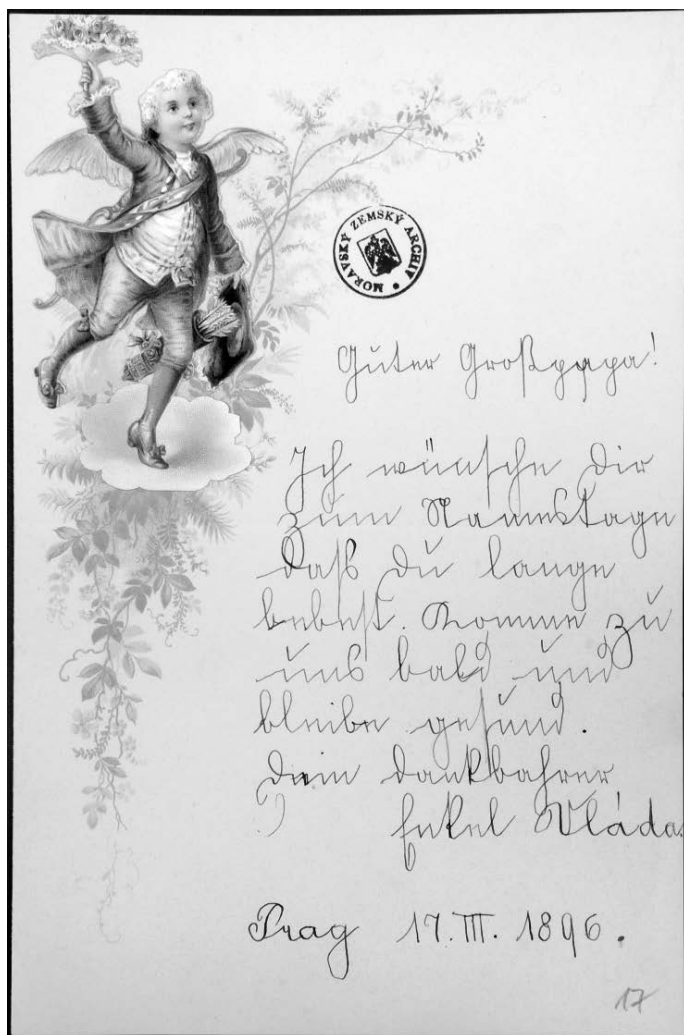 MORAVSKÝ ZEMSKÝ ARCHIV
Guter Großpapa!
Ich wünsche dir
zum Namestage
daß du lange
lebest. Komme zu
uns bald und
bleibe gesund.
Dein dankbahrer
Enkel Vláda.
Prag 17. III. 1896.
17